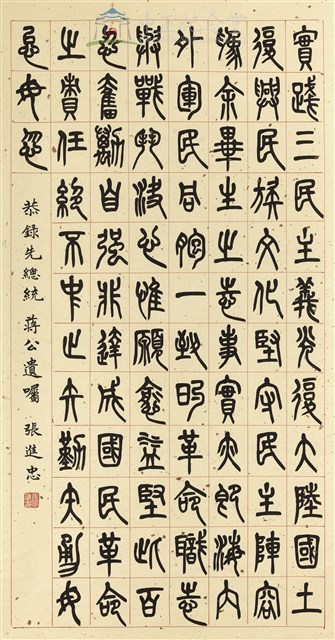 實踐三民主義光復大陸國土
復興民族文化堅守民主陣容
為余畢生之志事實亦即海內
外軍民同胞一致的革命職志
與戰鬥決心惟願愈益堅此百
忍奮勵自強非達成國民革命
之責任絕不中止矢勤矢勇毋
怠毋忽
恭錄先總統 蔣公遺囑 張進忠